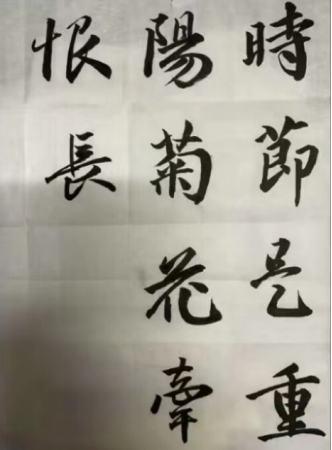 時節是重
陽菊花牽
恨長